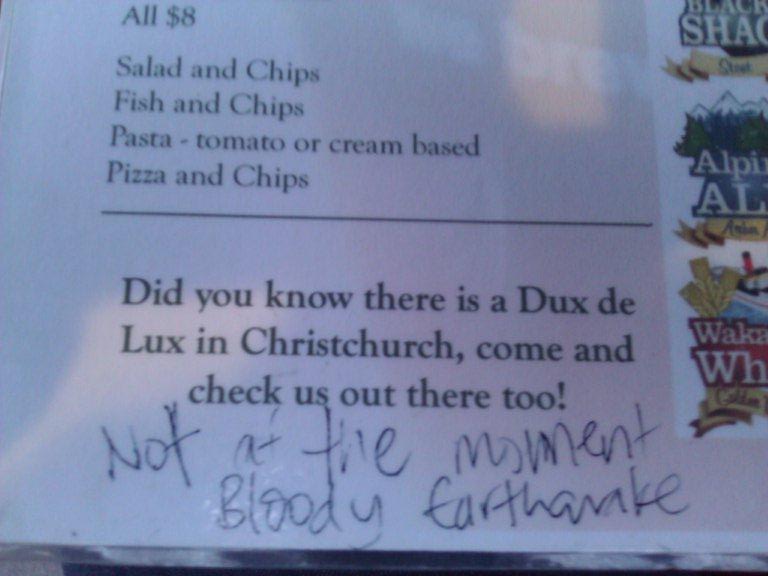 All $8
Salad and Chips
Fish and Chips
Pasta - tomato or cream based
Pizza and Chips
Did you know there is a Dux de
Lux in Christchurch, come and
check us out there too!
Not at the moment
Bloody Earthquake
BLACK
SHAG
Stout
Alpi
AL
Waka
Wh
Golden